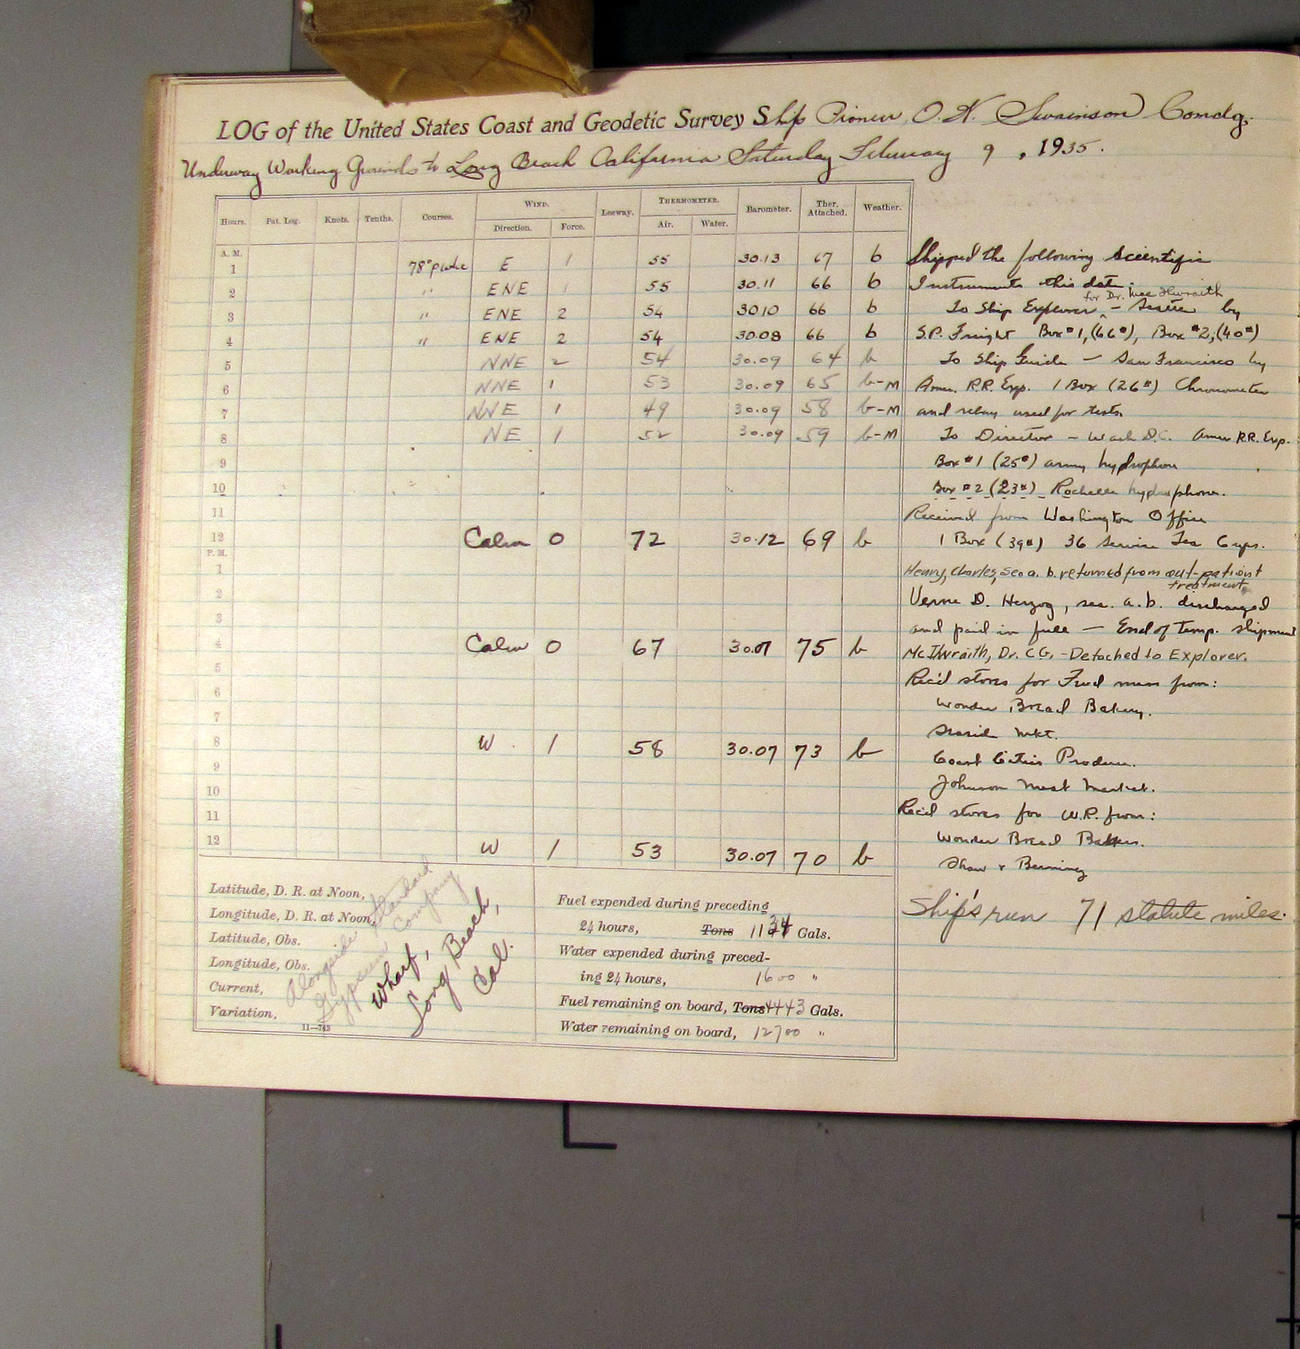 LOG of the United States Coast and Geodetic Survey Ship Pioneer, O. W. Swainson Comdg.
Underway Working Grounds to Long Beach California Saturday February 9, 1935.
Hours. Pat. Log. Knots. Tenths. Courses. WIND. Leeway. THERMOMETER. Barometer. Ther. Attached. Weather.
Direction. Force. Air. Water.
A. M.
1 78° E 1 55 30.13 67 b
2 " ENE 1 55 30.11 66 b
3 " ENE 2 54 30.10 66 b
4 " ENE 2 54 30.08 66 b
5 NNE 2 54 30.09 64 b
6 NNE 1 53 30.09 65 b-M
7 NNE 1 49 30.09 58 b-M
8 NE 1 52 30.09 59 b-M
9
10
11
12 Calm 0 72 30.12 69 b
P. M.
1
2
3
4 Calm 0 67 30.07 75 b
5
6
7
8 W 1 58 30.07 73 b
9
10
11
12 W 1 53 30.07 70 b
Shipped the following scientific
Instruments this date.
for Dr. McIlwraith
To Ship Explorer - Seattle by
S.P. Freight Box #1, (66#), Box #2, (40#)
To Ship Guide - San Francisco by
Amer. R.R. Exp. 1 Box (26#) Chronometer
and relay used for tests.
To Director - Wash D.C. Amer R.R. Exp.
Box #1 (25#) army hydrophone
Box #2 (23#) Rochelle hydrophone.
Received from Washington Office
1 Box (39#) 36 Service Tea Cups.
Henry, Charles, sea. a. b. returned from out-patient
treatment.
Verne D. Herzog, sea. a. b. discharged
and paid in full - End of Temp. shipment
McIlwraith, Dr. C.G. - Detached to Explorer.
Rec'd stores for Fwd mess from:
Wonder Bread Bakery.
Seaside Mkt.
Coast Cities Produce.
Johnson Meat Market.
Rec'd stores for W.R. from:
Wonder Bread Bakers.
Shaw &
Ship's run 71 statute miles.
Latitude, D. R. at Noon,
Longitude, D. R. at Noon,
Latitude, Obs.
Longitude, Obs.
Current,
Variation,
11-743
Alongside Standard
Gypsum Company
Wharf,
Long Beach,
Cal.
Fuel expended during preceding
24 hours, Tons 1134 Gals.
Water expended during preced-
ing 24 hours, 1600 "
Fuel remaining on board, Tons 4443 Gals.
Water remaining on board, 12700 "